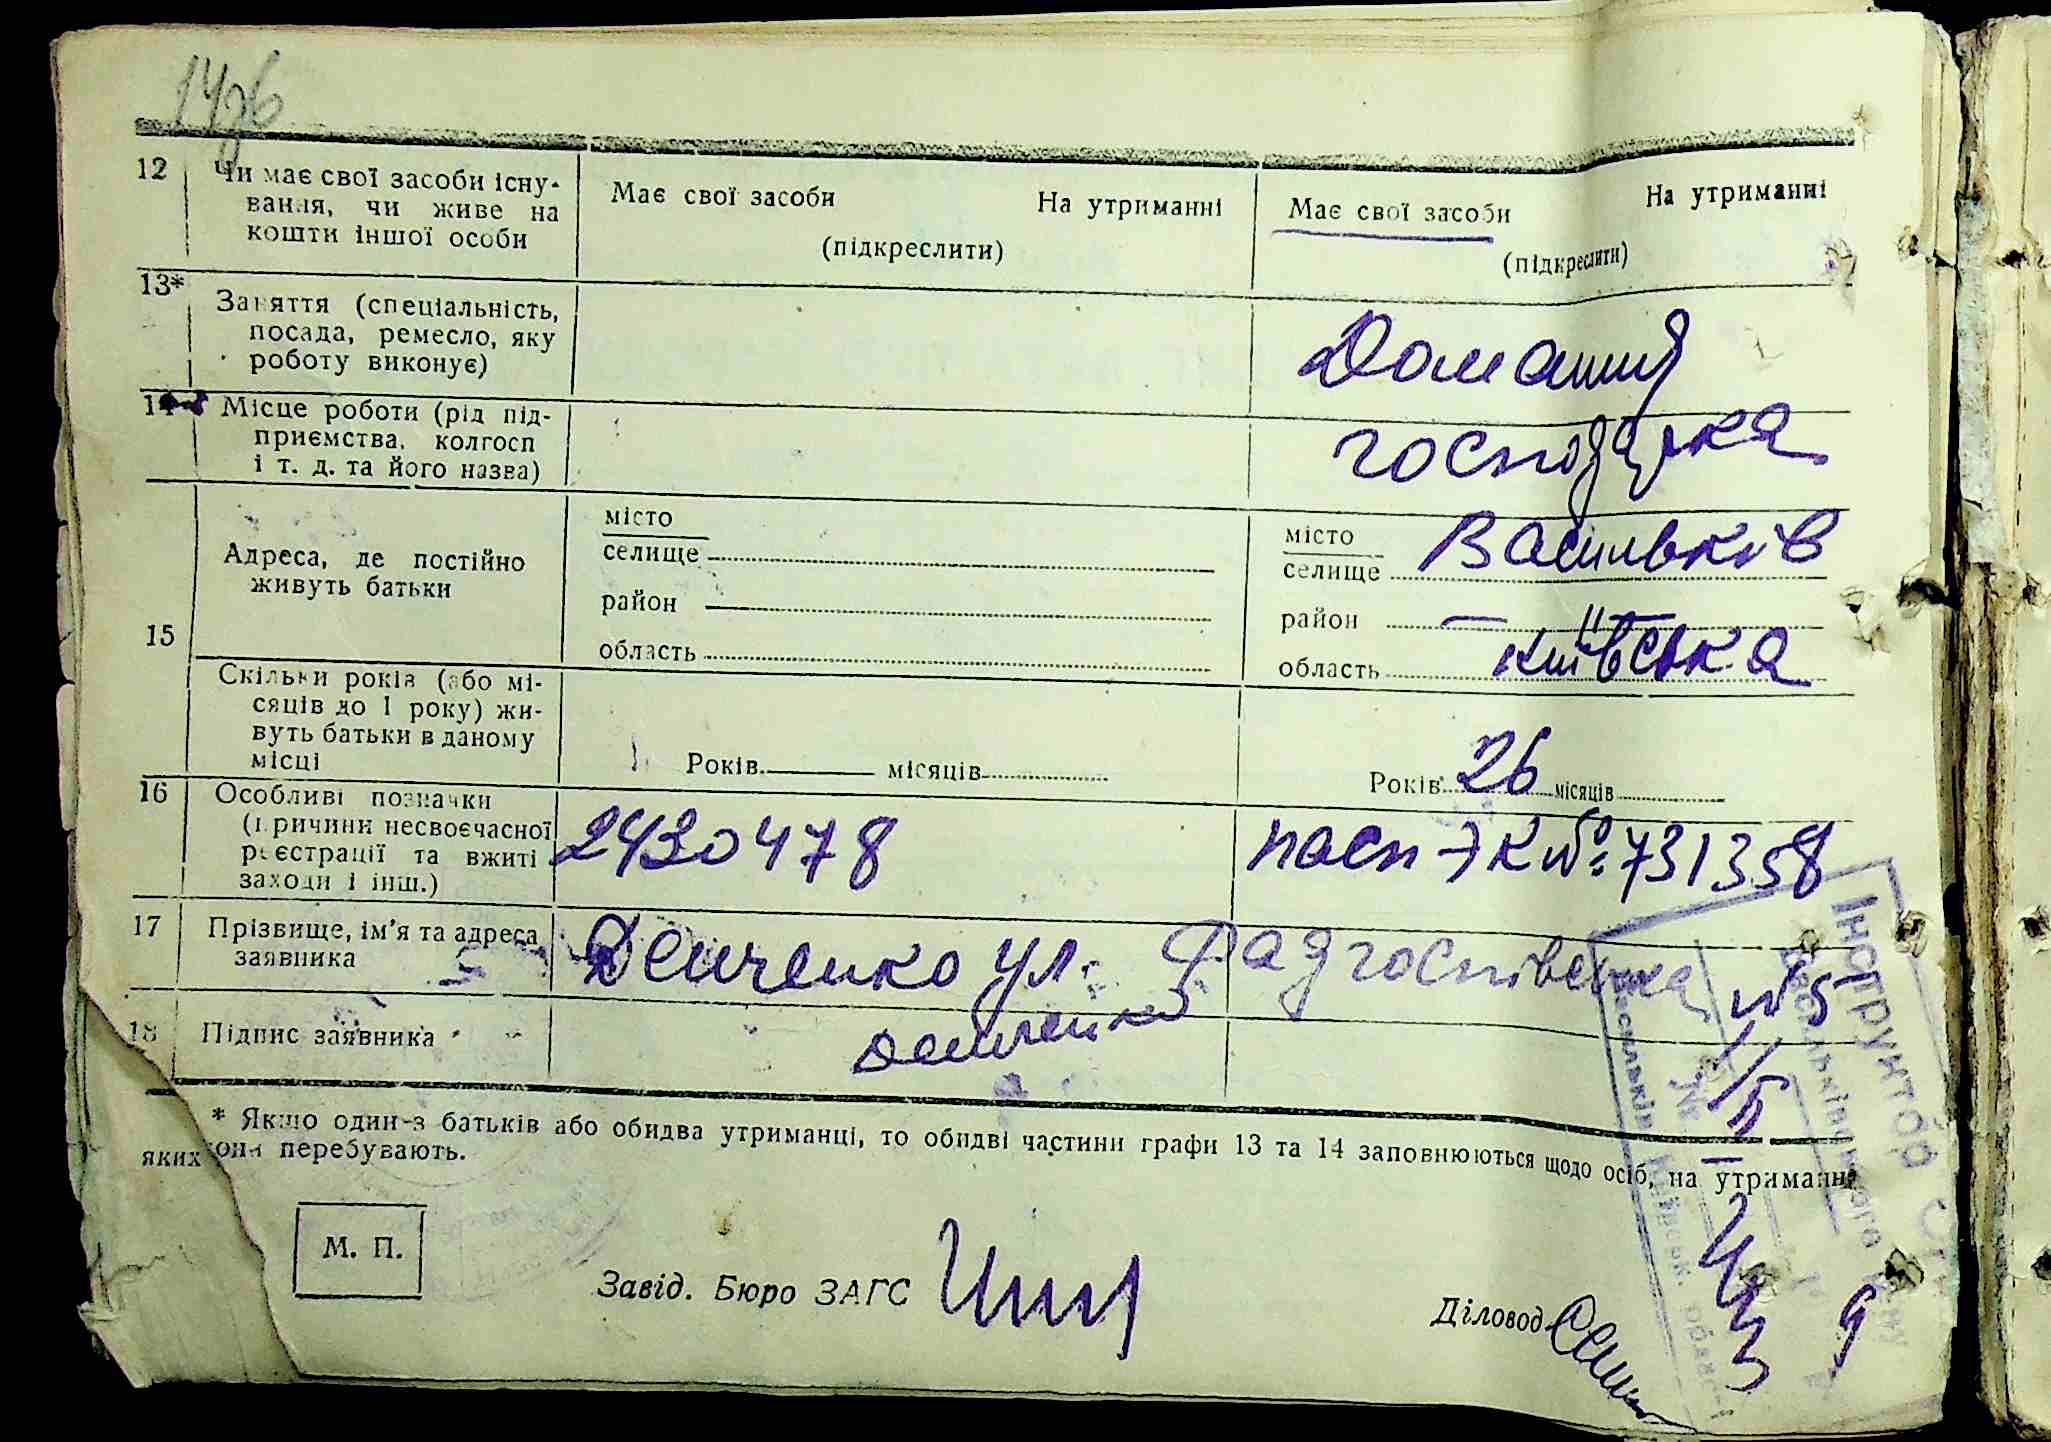 12 Чи має свої засоби існу-
вання, чи живе на
кошти іншої особи
Має свої засоби На утриманні
(підкреслити)
Має свої засоби На утриманні
(підкреслити)
13* Заняття (спеціальність,
посада, ремесло, яку
роботу виконує)
Домашня
14 Місце роботи (рід під-
приємства, колгосп
і т. д. та його назва)
господарка
15 Адреса, де постійно
живуть батьки
місто
селище
район
область
місто Васильків
селище
район — " —
область київська
Скільки років (або мі-
сяців до 1 року) жи-
вуть батьки в даному
місці
Років місяців
Років 26 місяців
16 Особливі позначки
(причини несвоєчасної
реєстрації та вжиті
заходи і інш.)
2430478
пасп ЭК № 731358
17 Прізвище, ім'я та адреса
заявника
Демченко ул. Радгоспівська №5
18 Підпис заявника
* Якщо один з батьків або обидва утриманці, то обидві частини графи 13 та 14 заповнюються щодо осіб, на утриманні
яких вони перебувають.
М. П.
Завід. Бюро ЗАГС
Діловод
Інструктор